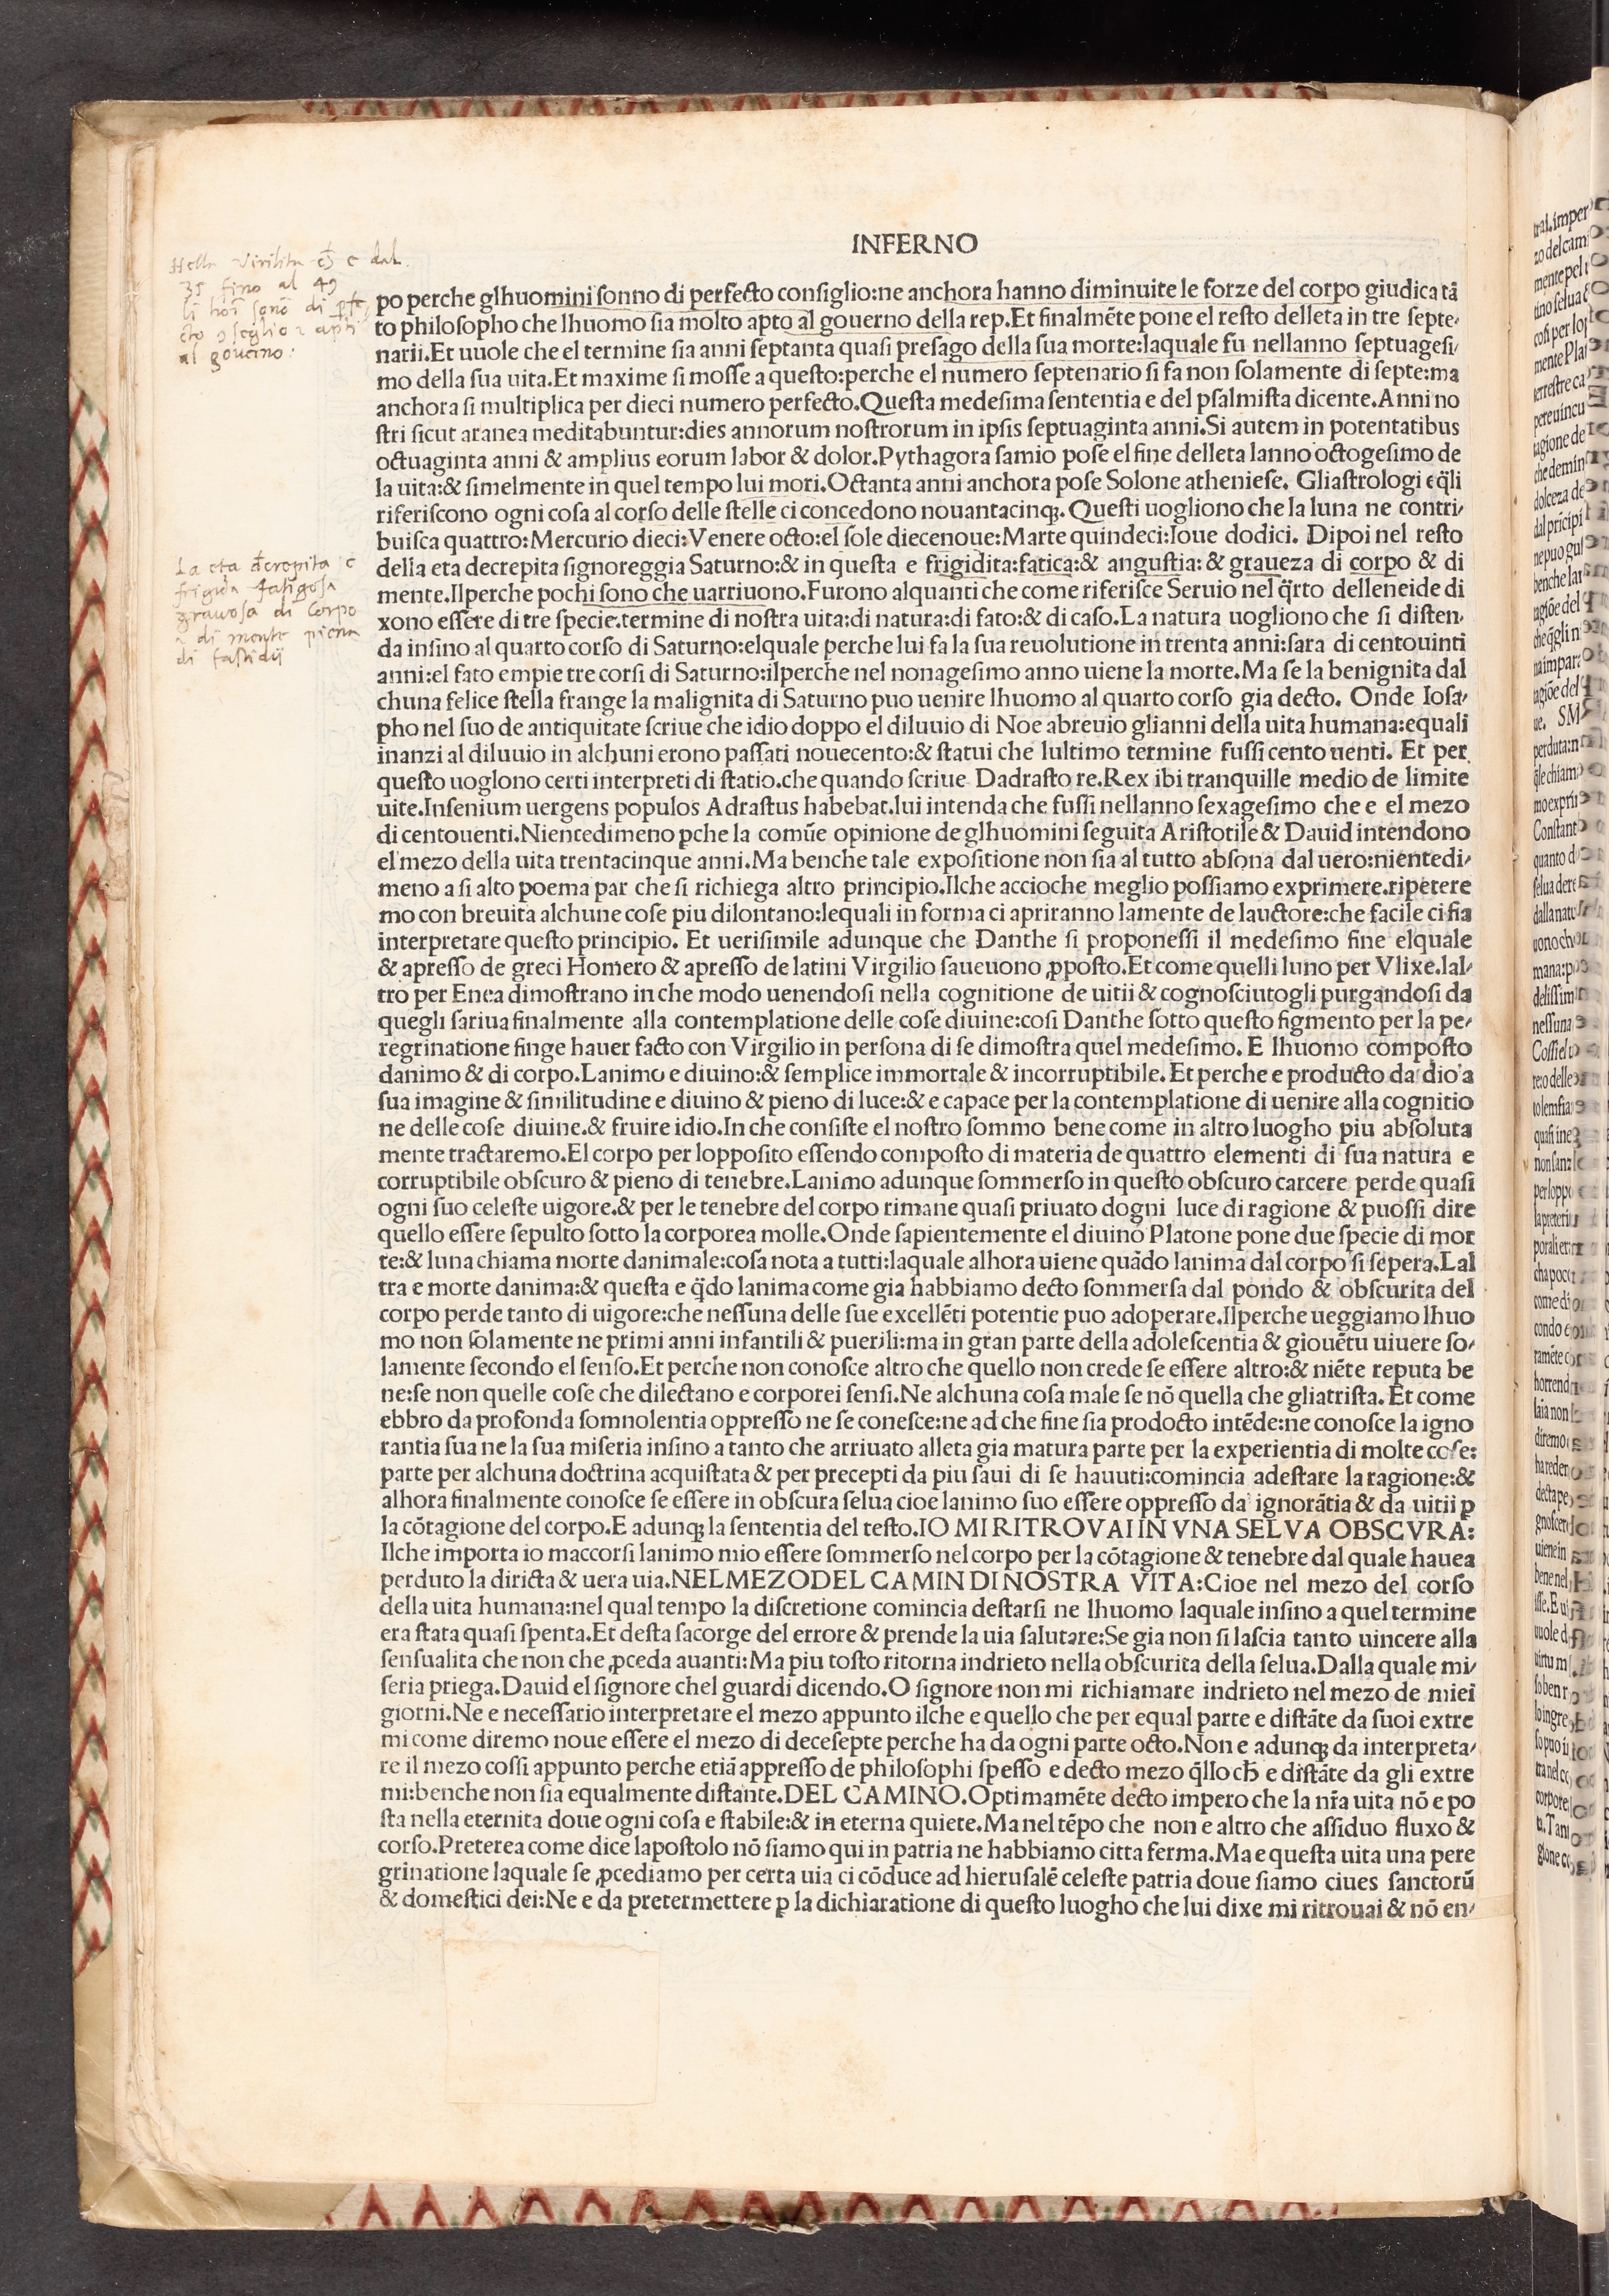 INFERNO
Nella Virilita ch̄ e dal
35 fino al 49
li hoī sonō di ꝑfe
cto ꝯseglio & apti
al gouerno:
po perche glhuomini sonno di perfecto consiglio:ne anchora hanno diminuite le forze del corpo giudica tā
to philosopho che lhuomo sia molto apto al gouerno della rep.Et finalmēte pone el resto delleta in tre septe-
narii.Et uuole che el termine sia anni septanta quasi presago della sua morte:laquale fu nellanno septuagesi-
mo della sua uita.Et maxime si mosse a questo:perche el numero septenario si fa non solamente di septe:ma
anchora si multiplica per dieci numero perfecto.Questa medesima sententia e del psalmista dicente.Anni no
stri sicut aranea meditabuntur:dies annorum nostrorum in ipsis septuaginta anni.Si autem in potentatibus
octuaginta anni & amplius eorum labor & dolor.Pythagora samio pose el fine delleta lanno octogesimo de
la uita:& simelmente in quel tempo lui mori.Octanta anni anchora pose Solone atheniese. Gliastrologi eq̄li
riferiscono ogni cosa al corso delle stelle ci concedono nouantacinqꝫ. Questi uogliono che la luna ne contri-
buisca quattro:Mercurio dieci:Venere octo:el sole diecenoue:Marte quindeci:Ioue dodici. Dipoi nel resto
La eta decrepita e
frigida fatigosa
grauosa di corpo
& di mente piena
di fastidii
della eta decrepita signoreggia Saturno:& in questa e frigidita:fatica:& angustia:& graueza di corpo & di
mente.Ilperche pochi sono che uarriuono.Furono alquanti che come riferisce Seruio nel q̄rto delleneide di
xono essere di tre specie.termine di nostra uita:di natura:di fato:& di caso.La natura uogliono che si disten-
da insino al quarto corso di Saturno:elquale perche lui fa la sua reuolutione in trenta anni:sara di centouinti
anni:el fato empie tre corsi di Saturno:ilperche nel nonagesimo anno uiene la morte.Ma se la benignita dal
chuna felice stella frange la malignita di Saturno puo uenire lhuomo al quarto corso gia decto. Onde Iosa-
pho nel suo de antiquitate scriue che idio doppo el diluuio di Noe abreuio glianni della uita humana:equali
inanzi al diluuio in alchuni erono passati nouecento:& statui che lultimo termine fussi cento uenti. Et per
questo uoglono certi interpreti di statio.che quando scriue Dadrasto re.Rex ibi tranquille medio de limite
uite.Insenium uergens populos Adrastus habebat.lui intenda che fussi nellanno sexagesimo che e el mezo
di centouenti.Niencedimeno ꝑche la comūe opinione de glhuomini seguita Aristotile & Dauid intendono
el mezo della uita trentacinque anni.Ma benche tale expositione non sia al tutto absona dal uero:nientedi-
meno a si alto poema par che si richiega altro principio.Ilche accioche meglio possiamo exprimere.ripetere
mo con breuita alchune cose piu dilontano:lequali in forma ci apriranno lamente de lauctore:che facile ci fia
interpretare questo principio. Et uerisimile adunque che Danthe si proponessi il medesimo fine elquale
& apresso de greci Homero & apresso de latini Virgilio saueuono ꝓposto.Et come quelli luno per Vlixe.lal-
tro per Enea dimostrano in che modo uenendosi nella cognitione de uitii & cognosciutogli purgandosi da
quegli sariua finalmente alla contemplatione delle cose diuine:cosi Danthe sotto questo figmento per la pe-
regrinatione finge hauer facto con Virgilio in persona di se dimostra quel medesimo. E lhuomo composto
danimo & di corpo.Lanimo e diuino:& semplice immortale & incorruptibile. Et perche e producto da dio a
sua imagine & similitudine e diuino & pieno di luce:& e capace per la contemplatione di uenire alla cognitio
ne delle cose diuine.& fruire idio.In che consiste el nostro sommo bene come in altro luogho piu absoluta
mente tractaremo.El corpo per lopposito essendo composto di materia de quattro elementi di sua natura e
corruptibile obscuro & pieno di tenebre.Lanimo adunque sommerso in questo obscuro carcere perde quasi
ogni suo celeste uigore.& per le tenebre del corpo rimane quasi priuato dogni luce di ragione & puossi dire
quello essere sepulto sotto la corporea molle.Onde sapientemente el diuino Platone pone due specie di mor
te:& luna chiama morte danimale:cosa nota a tutti:laquale alhora uiene quādo lanima dal corpo si sepera.Lal
tra e morte danima:& questa e q̄do lanima come gia habbiamo decto sommersa dal pondo & obscurita del
corpo perde tanto di uigore:che nessuna delle sue excellēti potentie puo adoperare.Ilperche ueggiamo lhuo
mo non solamente ne primi anni infantili & puerili:ma in gran parte della adolescentia & giouētu uiuere so-
lamente secondo el senso.Et perche non conosce altro che quello non crede se essere altro:& niēte reputa be
ne:se non quelle cose che dilectano e corporei sensi.Ne alchuna cosa male se nō quella che gliatrista. Et come
ebbro da profonda somnolentia oppresso ne se conesce:ne ad che fine sia prodocto intēde:ne conosce la igno
rantia sua ne la sua miseria insino a tanto che arriuato alleta gia matura parte per la experientia di molte cose:
parte per alchuna doctrina acquistata & per precepti da piu saui di se hauuti:comincia adestare la ragione:&
alhora finalmente conosce se essere in obscura selua cioe lanimo suo essere oppresso da ignorātia & da uitii ꝑ
la cōtagione del corpo.E adunqꝫ la sententia del testo.IO MI RITROVAI IN VNA SELVA OBSCVRA:
Ilche importa io maccorsi lanimo mio essere sommerso nel corpo per la cōtagione & tenebre dal quale hauea
perduto la diricta & uera uia.NEL MEZO DEL CAMIN DI NOSTRA VITA:Cioe nel mezo del corso
della uita humana:nel qual tempo la discretione comincia destarsi ne lhuomo laquale insino a quel termine
era stata quasi spenta.Et desta sacorge del errore & prende la uia salutare:Se gia non si lascia tanto uincere alla
sensualita che non che ꝓceda auanti:Ma piu tosto ritorna indrieto nella obscurita della selua.Dalla quale mi-
seria priega.Dauid el signore chel guardi dicendo.O signore non mi richiamare indrieto nel mezo de miei
giorni.Ne e necessario interpretare el mezo appunto ilche e quello che per equal parte e distāte da suoi extre
mi come diremo noue essere el mezo di decesepte perche ha da ogni parte octo.Non e adunqꝫ da interpreta-
re il mezo cossi appunto perche etiā appresso de philosophi spesso e decto mezo q̄llo ch̄ e distāte da gli extre
mi:benche non sia equalmente distante.DEL CAMINO.Optimamēte decto impero che la nr̄a uita nō e po
sta nella eternita doue ogni cosa e stabile:& in eterna quiete.Ma nel tēpo che non e altro che assiduo fluxo &
corso.Preterea come dice lapostolo nō siamo qui in patria ne habbiamo citta ferma.Ma e questa uita una pere
grinatione laquale se ꝓcediamo per certa uia ci cōduce ad hierusalē celeste patria doue siamo ciues sanctorū
& domestici dei:Ne e da pretermettere ꝑ la dichiaratione di questo luogho che lui dixe mi ritrouai & nō en-